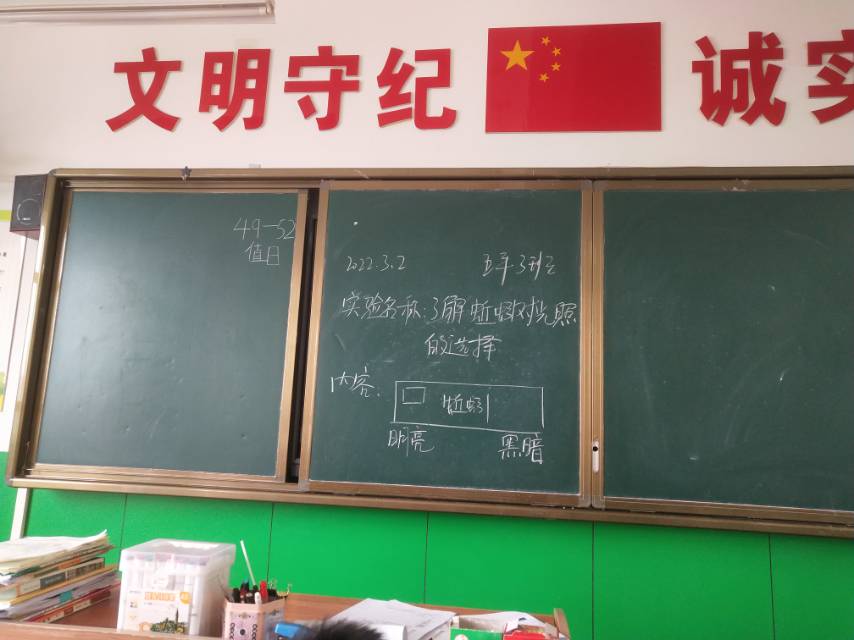 文明守纪
诚实
49-52
值日
2022.3.2
五年.3班
实验名称:了解蚯蚓对光照
的选择
内容.
蚯蚓
明亮
黑暗